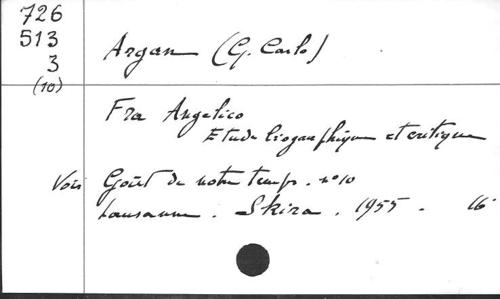 726
513
3
(10)
Argan (G. Carlo)
Fra Angelico
Etude biographique et critique
Voir Goût de notre temps. n° 10
Lausanne. Skira. 1955. 16°